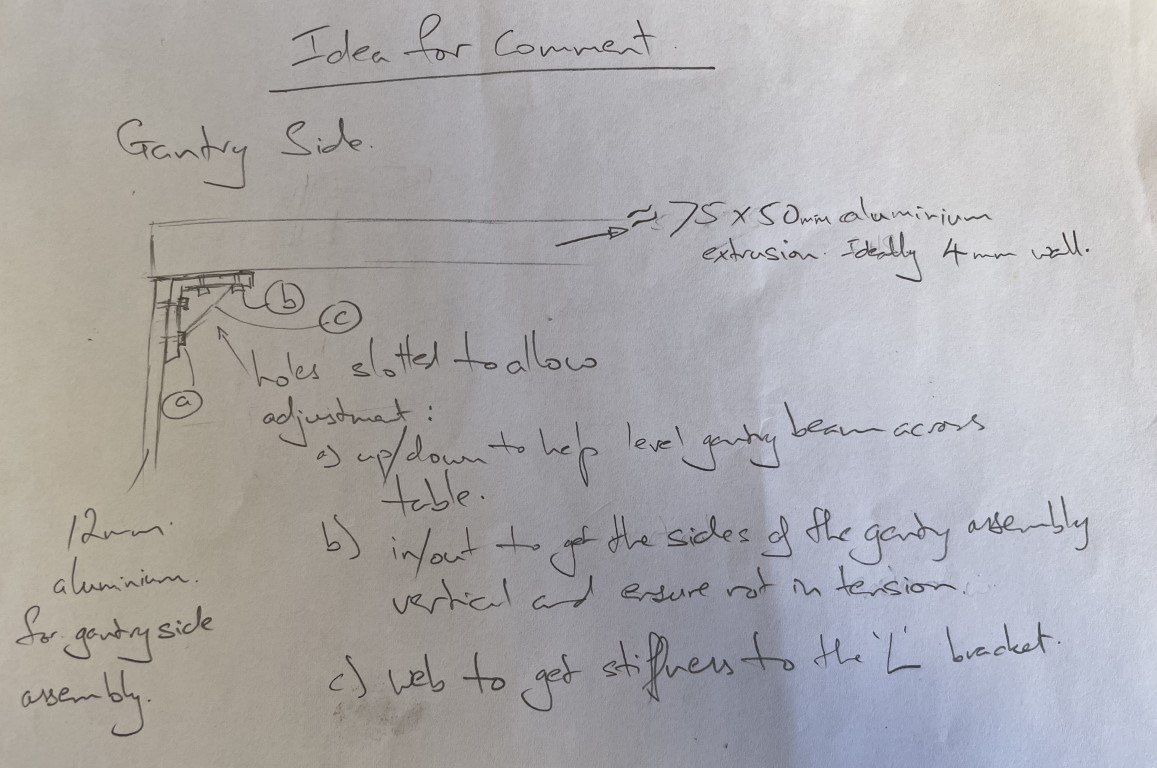 Idea for Comment.
Gantry Side.
≈ 75 x 50mm aluminium
extrusion. Ideally 4mm wall.
b
c
a
holes slotted to allow
adjustment:
a) up/down to help level gantry beam across
table.
b) in/out to get the sides of the gantry assembly
vertical and ensure not in tension.
c) web to get stiffness to the 'L' bracket.
12mm
aluminium.
for gantry side
assembly.